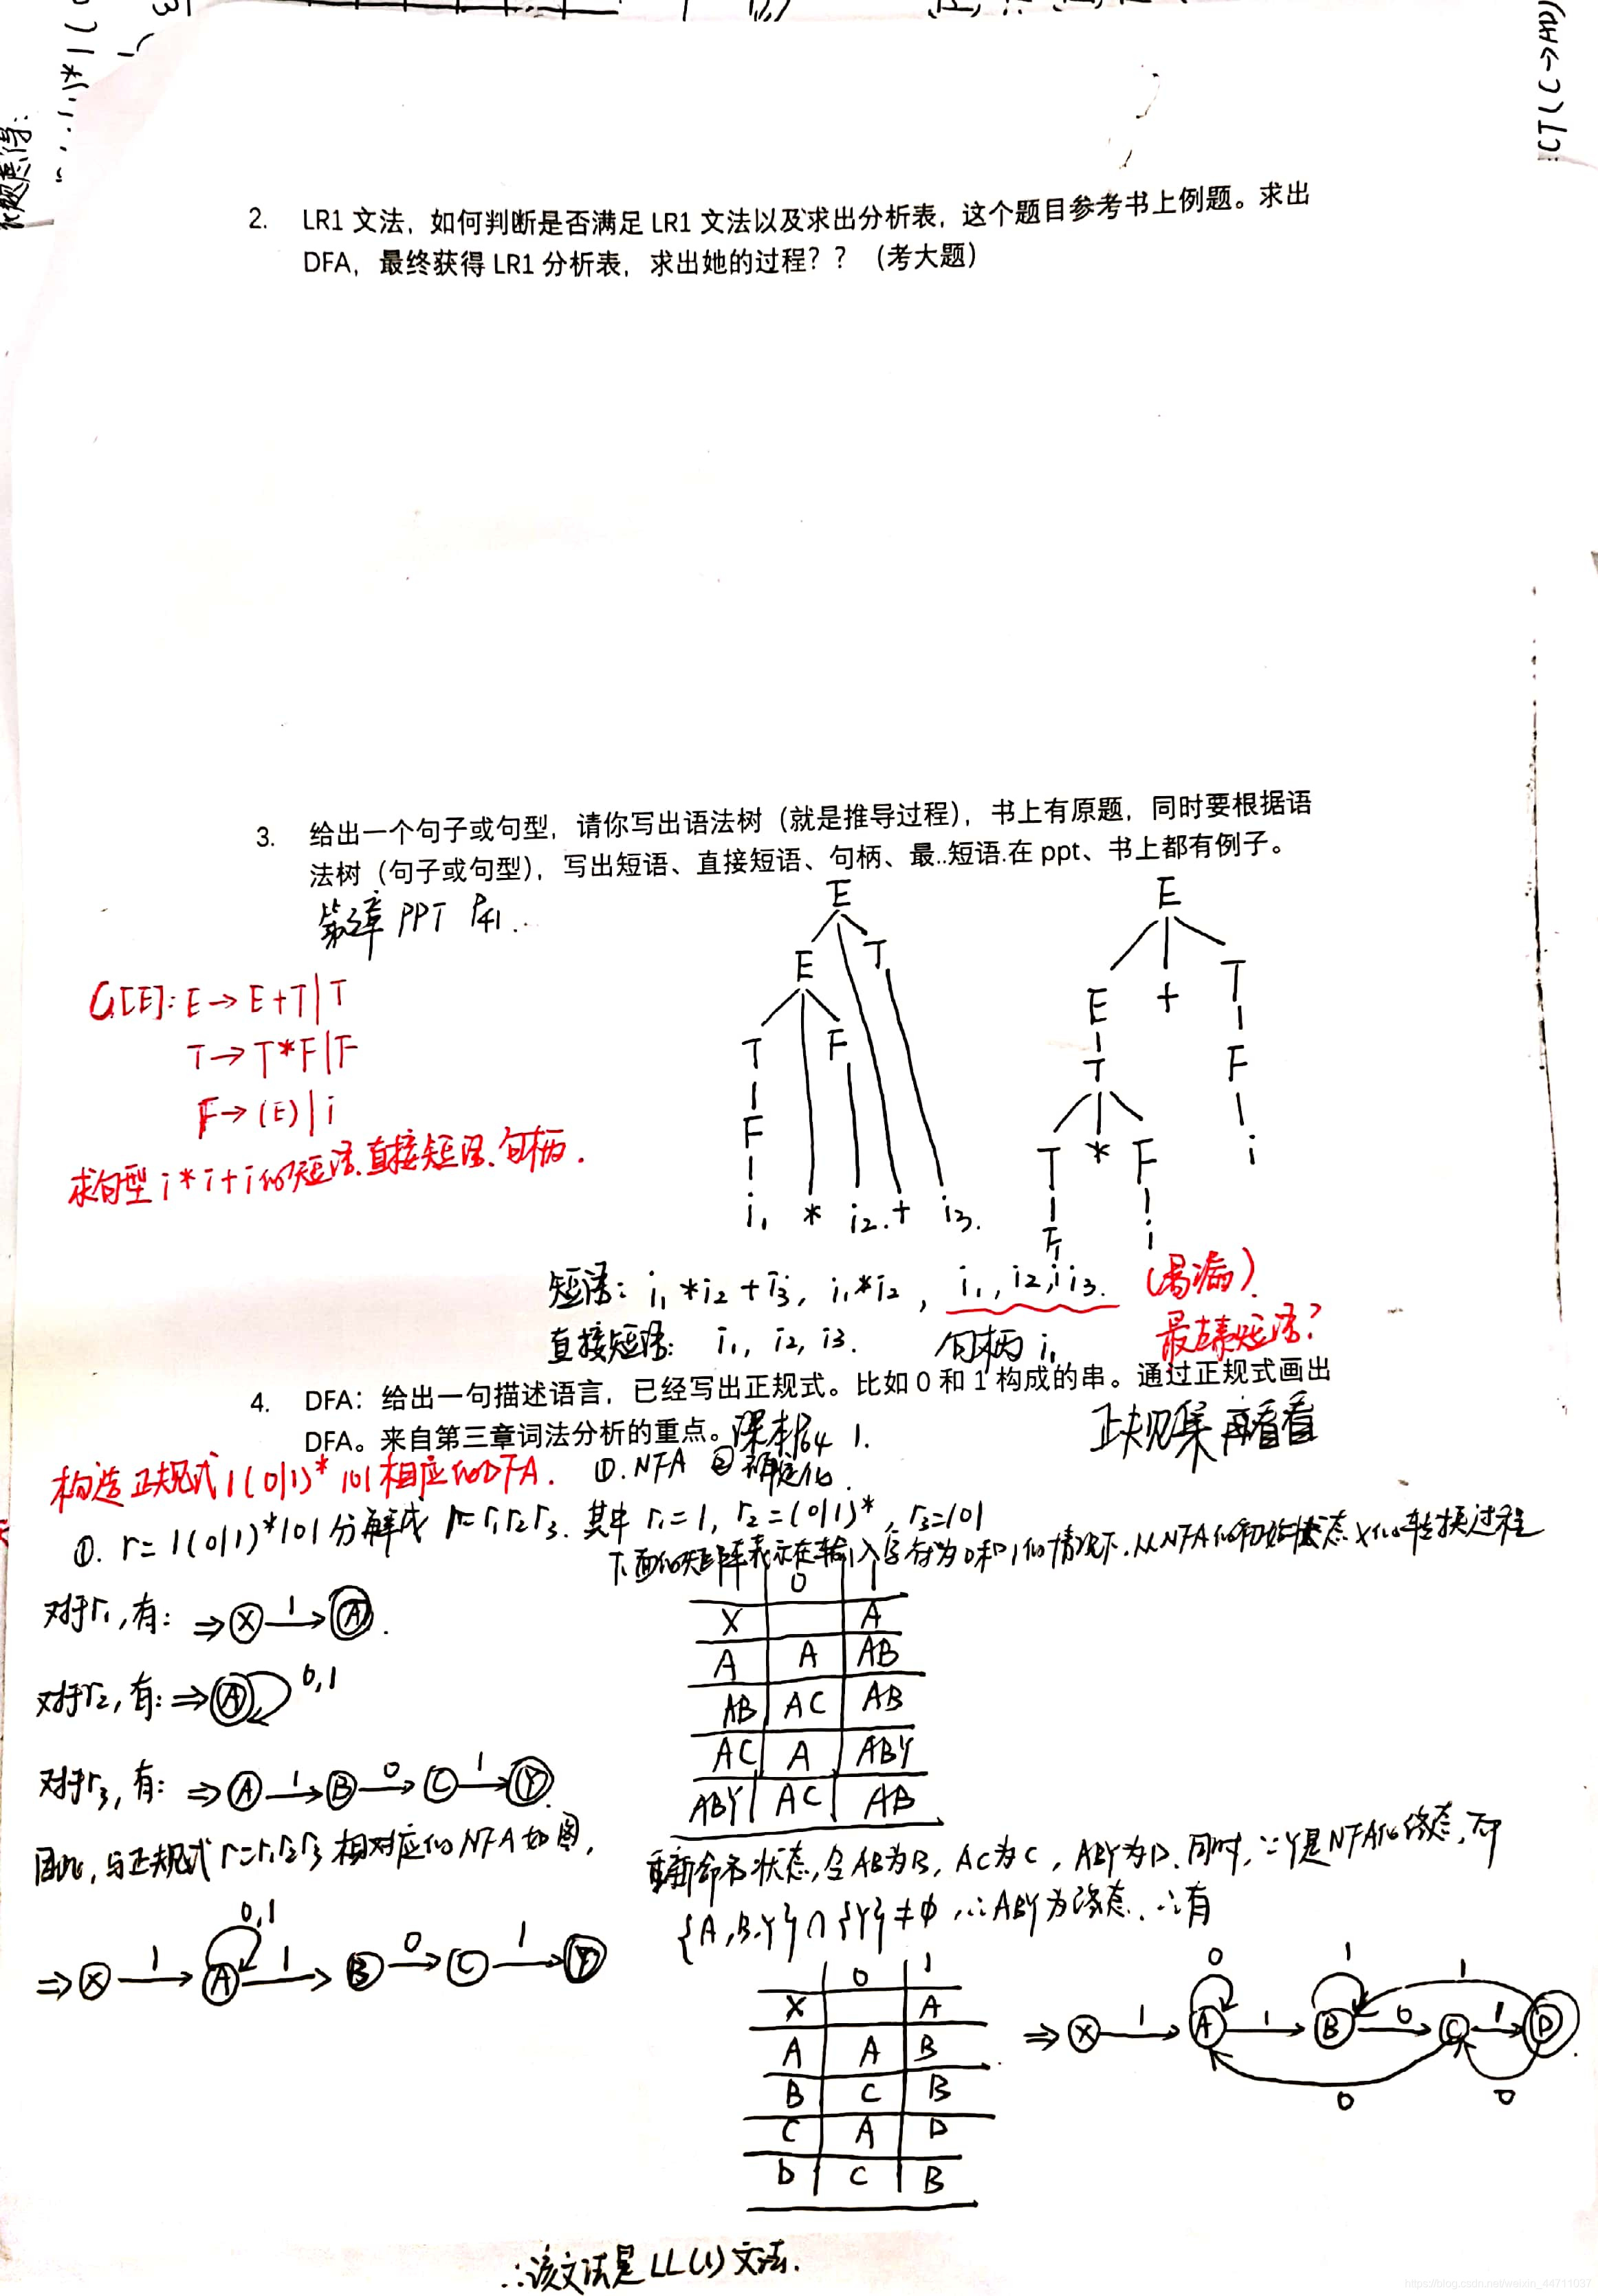 :CT(C→AD)
2. LR1 文法，如何判断是否满足 LR1 文法以及求出分析表，这个题目参考书上例题。求出
DFA，最终获得 LR1 分析表，求出她的过程？？（考大题）
3. 给出一个句子或句型，请你写出语法树（就是推导过程），书上有原题，同时要根据语
法树（句子或句型），写出短语、直接短语、句柄、最..短语.在 ppt、书上都有例子。
PPT P41...
G[E]: E→E+T|T
T→T*F|F
F→(E)|i
求句型 i*i+i的短语.直接短语.句柄.
E
E T
T F
F
i₁ * i₂ + i₃.
E
E + T
T F
T * F i
F i
i
短语: i₁*i₂+i₃, i₁*i₂, i₁, i₂, i₃. (易漏)
直接短语: i₁, i₂, i₃. 句柄 i₁
最左素短语?
4. DFA：给出一句描述语言，已经写出正规式。比如 0 和 1 构成的串。通过正规式画出
DFA。来自第三章词法分析的重点。课本P64 1.
正规集 再看看
构造正规式1(0|1)*101相应的DFA. ①.NFA ②确定化.
①. r=1(0|1)*101分解成 r=r₁r₂r₃. 其中 r₁=1, r₂=(0|1)*, r₃=101
下面的矩阵表示在输入字符为0和1的情况下.从NFA的初始状态X的转换过程
对于r₁,有: ⇒X 1→ A.
对于r₂,有: ⇒A 0,1
对于r₃,有: ⇒A 1→ B 0→ C 1→ Y.
因此,与正规式r=r₁r₂r₃相对应的NFA如图,
⇒X 1→ A 0,1 1→ B 0→ C 1→ Y
0 1
X A
A A AB
AB AC AB
AC A ABY
ABY AC AB
重新命名状态,令AB为B, AC为C, ABY为D.同时,∵Y是NFA的终态,即
{A,B,Y}∩{Y}≠φ,∴ABY为终态.∴有
0 1
X A
A A B
B C B
C A D
D C B
⇒X 1→ A 0 1→ B 1 0→ C 1→ D 1 0 0
∴该文法是LL(1)文法.
https://blog.csdn.net/weixin_44711037